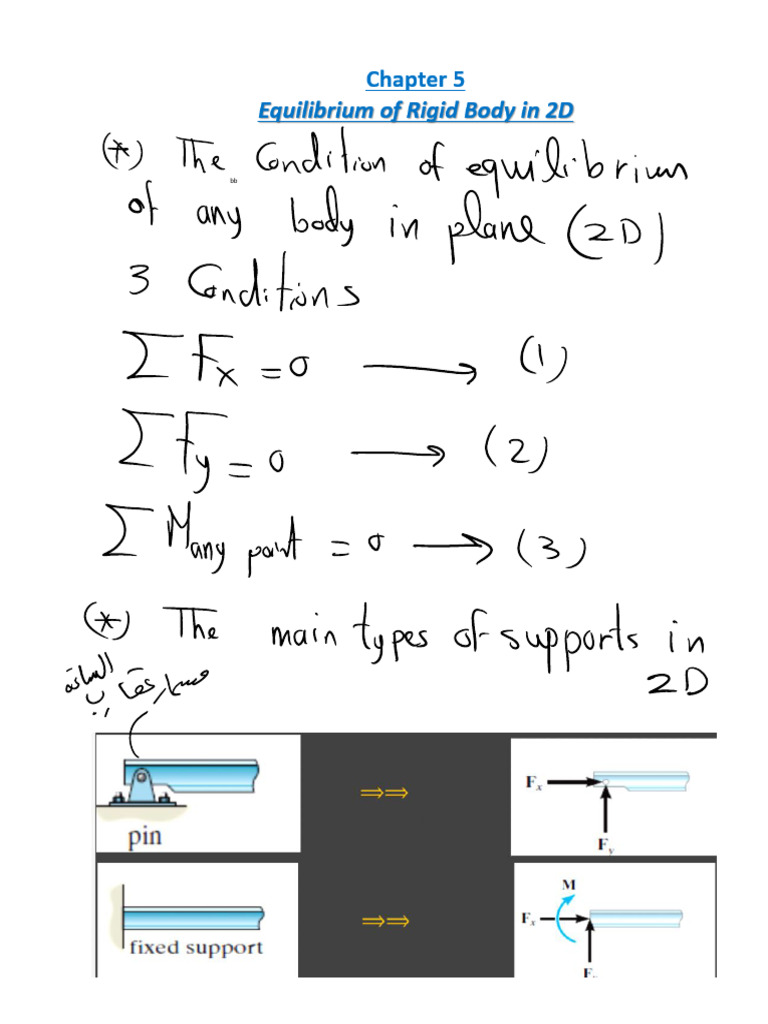 Chapter 5
Equilibrium of Rigid Body in 2D
(*) The Condition of equilibrium
bb
of any body in plane (2D)
3 Conditions
∑ Fx = 0 ⟶ (1)
∑ Fy = 0 ⟶ (2)
∑ M any point = 0 ⟶ (3)
(*) The main types of supports in
2D
pin
⇒⇒
Fx
Fy
fixed support
⇒⇒
M
Fx
F